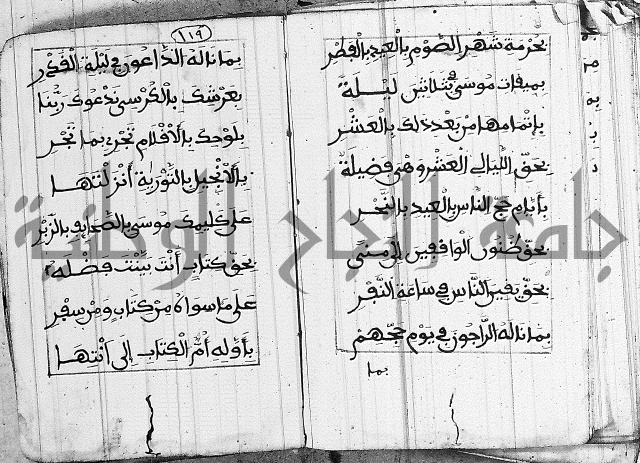 بحرمة شهر الصوم بالعيد بالفطر
بميقات موسى في ثلاثين ليلة
بإتمامها من بعد ذلك بالعشر
بحق الليالي العشر وهي فضيلة
بأيام حج الناس بالعيد بالنحر
بحق ظنون الواقفين إلى منى
بحق يقين الناس في ساعة النفر
بما ناله الراجون في يوم حجهم
بما
١١٩
بما ناله الداعون في ليلة القدر
بعرشك بالكرسي ندعوك ربنا
بلوحك بالأقلام تجري بما تجر
بالانجيل بالتورية أنزلتها
على كليمك موسى بالصحايف بالزبر
بحق كتاب أنت بينت فضله
على ما سواه من كتاب ومن سفر
بأوله أم الكتاب إلى انتها
جامعة النجاح الوطنية